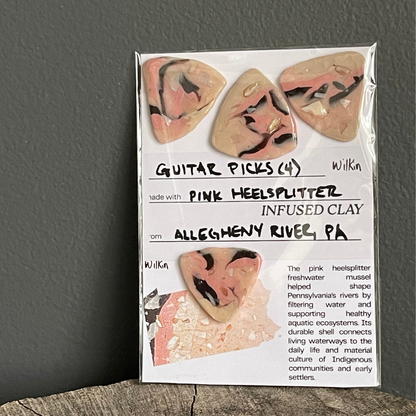 GUITAR PICKS (4) Wilkin
made with PINK HEELSPLITTER
INFUSED CLAY
from ALLEGHENY RIVER, PA
Wilkin
The pink heelsplitter
freshwater mussel
helped shape
Pennsylvania's rivers by
filtering water and
supporting healthy
aquatic ecosystems. Its
durable shell connects
living waterways to the
daily life and material
culture of Indigenous
communities and early
settlers.